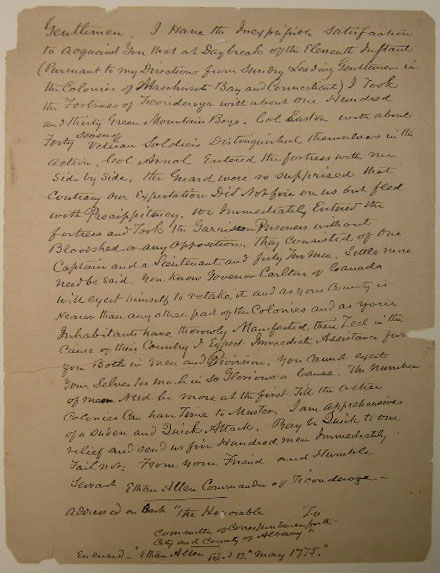 Gentlemen. I Have the Inexpressible Satisfaction
to Acquaint You that at Daybreak of the Eleventh Instant
(Pursuant to my Directions from Sundry Leading Gentlemen in
the Colonies of Massachusets Bay and Connecticut) I Took
the Fortress of Ticonderoga with about One Hundred
and thirty Green Mountain Boys. Col Easton with about
Forty Seven Veteran Soldiers Distinguished themselves in the
Action. Col Arnol Entered the fortress with me
Side by Side. the Guard were so surprised that
Contrary Our Expectation Did Not fire on us but fled
with Precippitency. We Immediately Entered the
fortress and Took the Garrison Prisoners without
Bloodshed or any Opposition. They Consisted of One
Captain and a Lieutenant and forty Two Men. Little more
Need be Said. You Know Govenor Carlton of Canada
will exert himself to retake it and as your County is
Nearer than any other part of the Colonies and as your
Inhabitants have thoroly Manifested their Zeal in the
Cause of their Country I Expect Immediate Assistance from
you Both in Men and Provision. You Cannot exert
Your Selves too much in So Glorious a Cause. The Number
of men Need be more at the first Till the other
Colonies Can have Time to Muster. I am Apprehensive
of a Suden and Quick Attack. Pray be Quick to our
relief and Send us five Hundred men Immediately
Fail not. From Your Friend and Humble
Servant Ethan Allen Commander of Ticonderoga.
Addressed on Back "The Honorable To
Committe of Correspondence for the
City and County of Albany"
Endorsed - "Ethan Allen 12th May 1775."